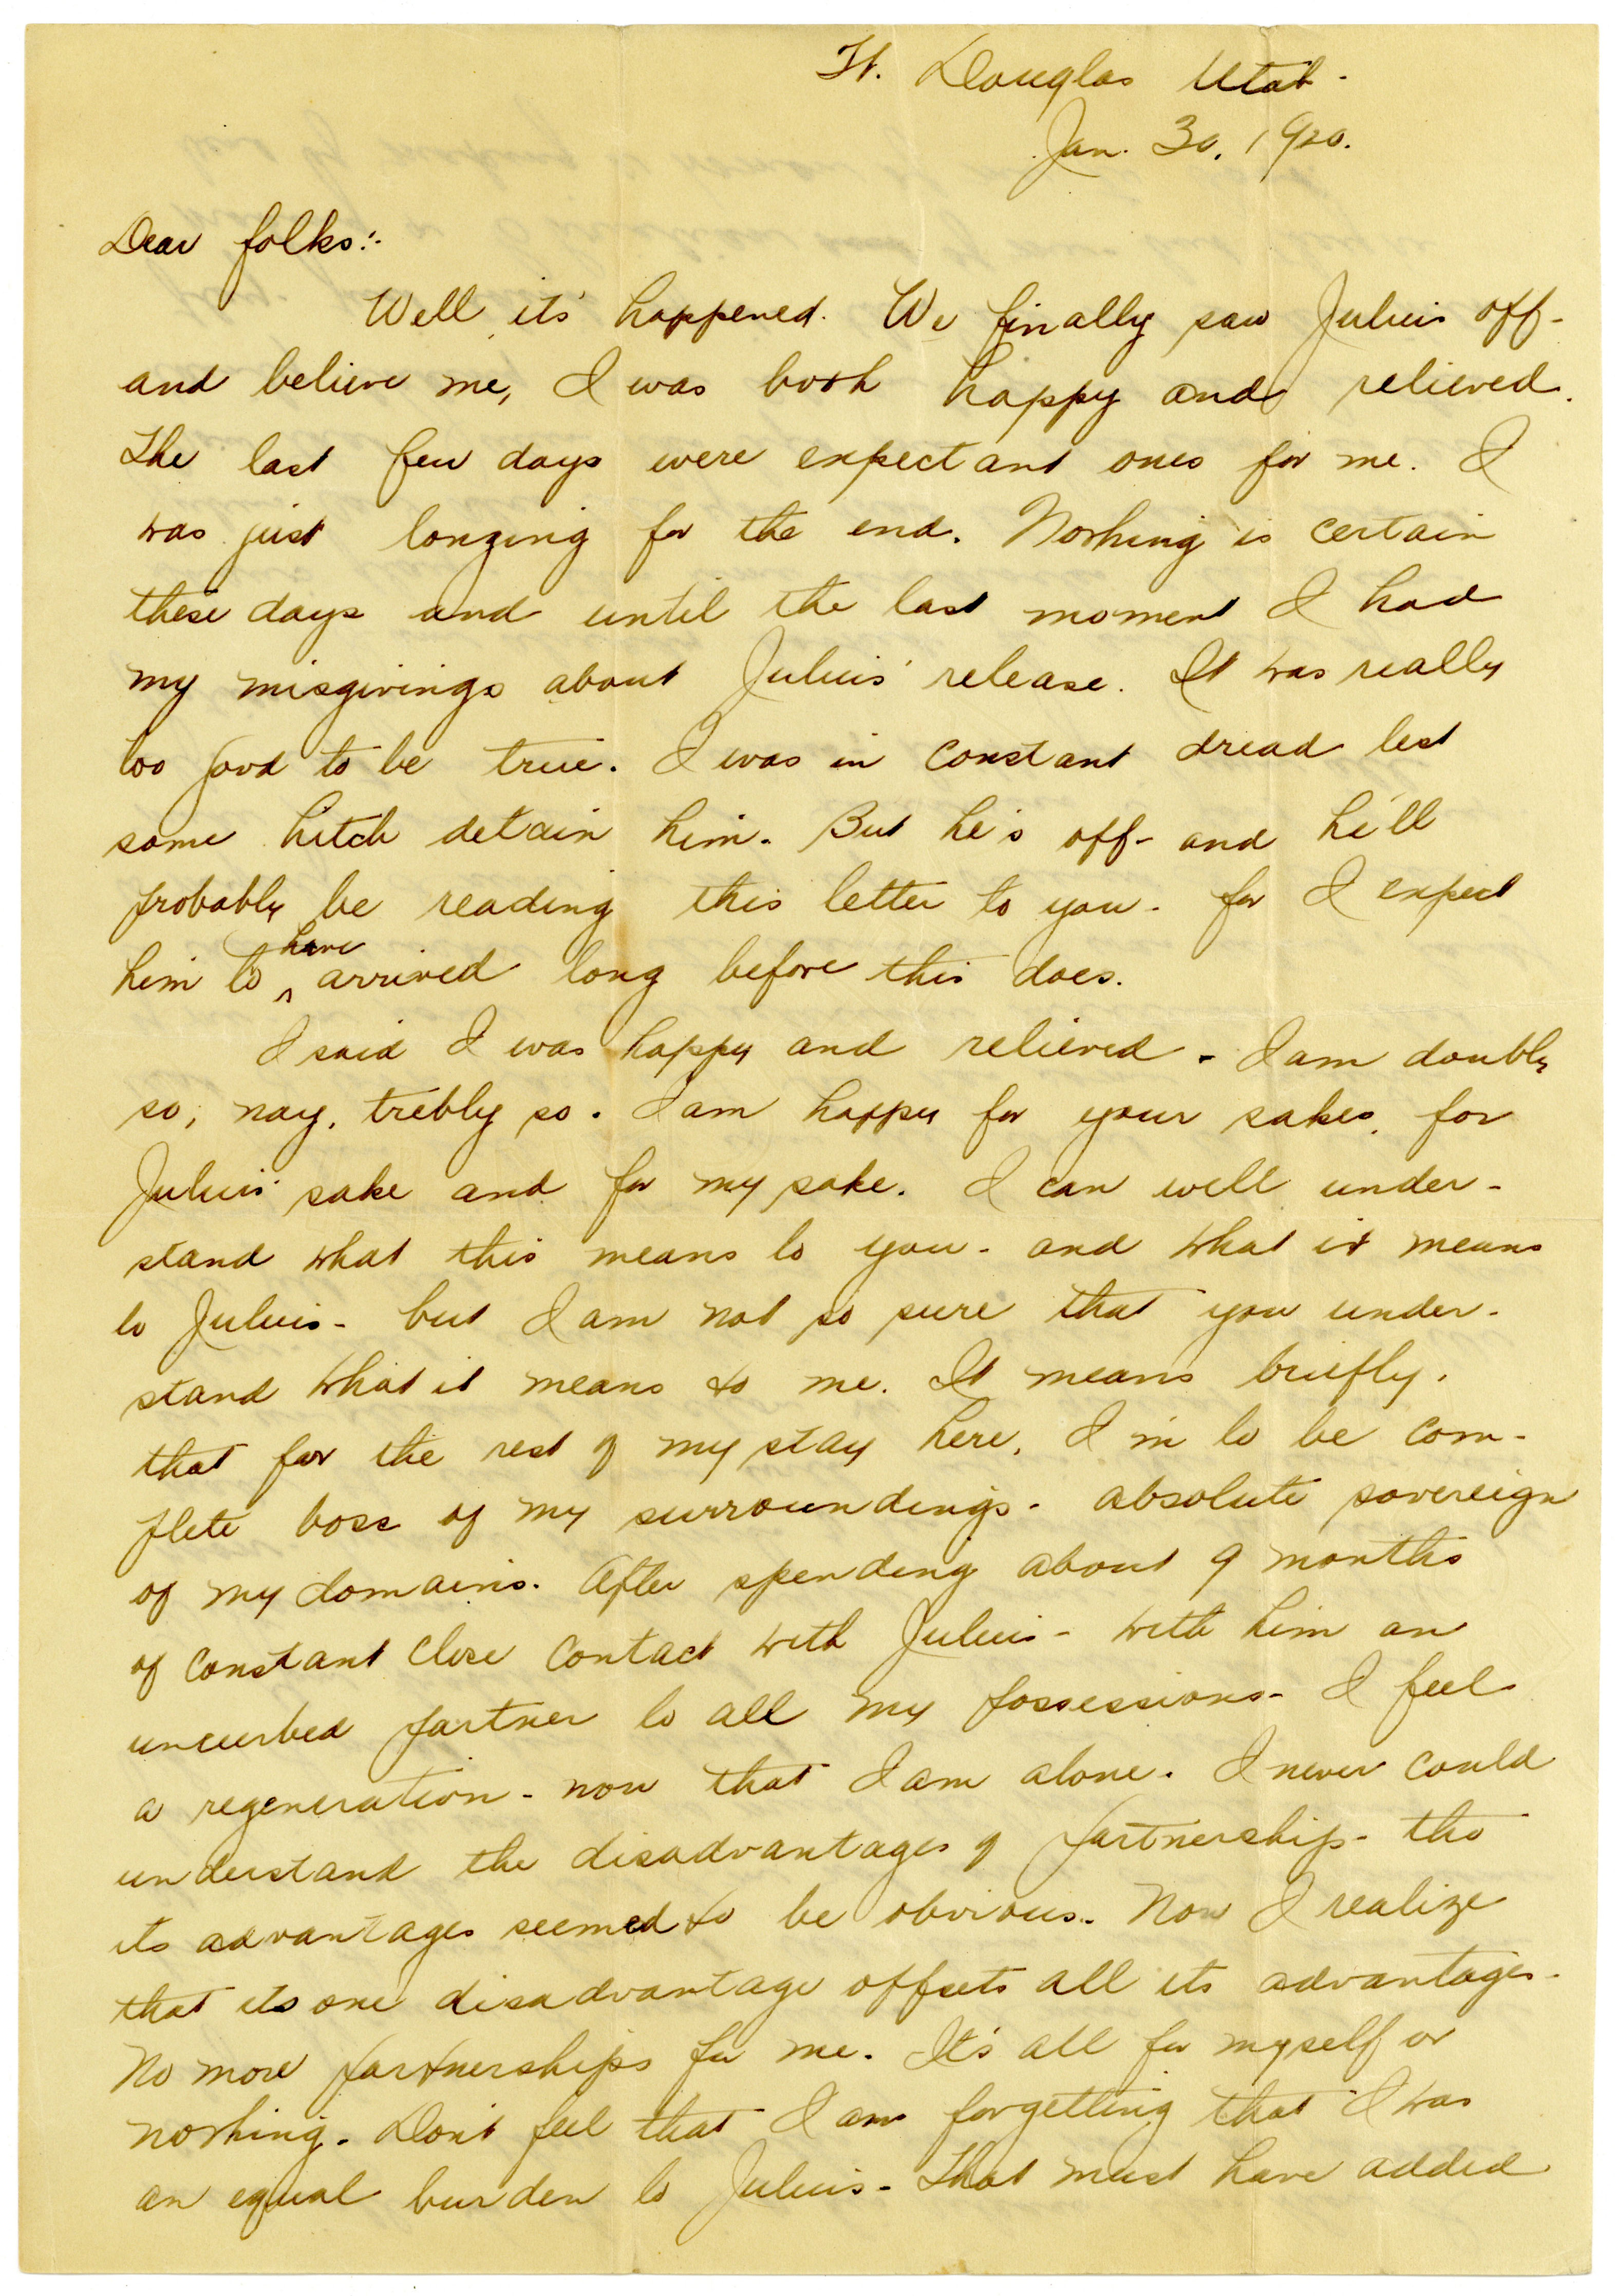 Ft. Douglas Utah -
Jan. 30, 1920.
Dear folks:-
Well it's happened. We finally saw Julius off -
and believe me, I was both happy and relieved.
The last few days were expectant ones for me. I
was just longing for the end. Nothing is certain
these days and until the last moment I had
my misgivings about Julius' release. It was really
too good to be true. I was in constant dread lest
some hitch detain him. But he's off - and he'll
probably be reading this letter to you - for I expect
him to have arrived long before this does.
I said I was happy and relieved - I am doubly
so, nay, trebly so. I am happy for your sakes, for
Julius' sake and for my sake. I can well under-
stand what this means to you - and what it means
to Julius - but I am not so sure that you under-
stand what it means to me. It means briefly,
that for the rest of my stay here, I'm to be com-
plete boss of my surroundings - absolute sovereign
of my domains. After spending about 9 months
of constant close contact with Julius - with him an
uncurbed partner to all my possessions - I feel
a regeneration - now that I am alone. I never could
understand the disadvantages of partnership - tho
its advantages seemed to be obvious. Now I realize
that its one disadvantage offsets all its advantages -
No more partnerships for me. It's all for myself or
nothing. Don't feel that I am forgetting that I was
an equal burden to Julius - That must have added